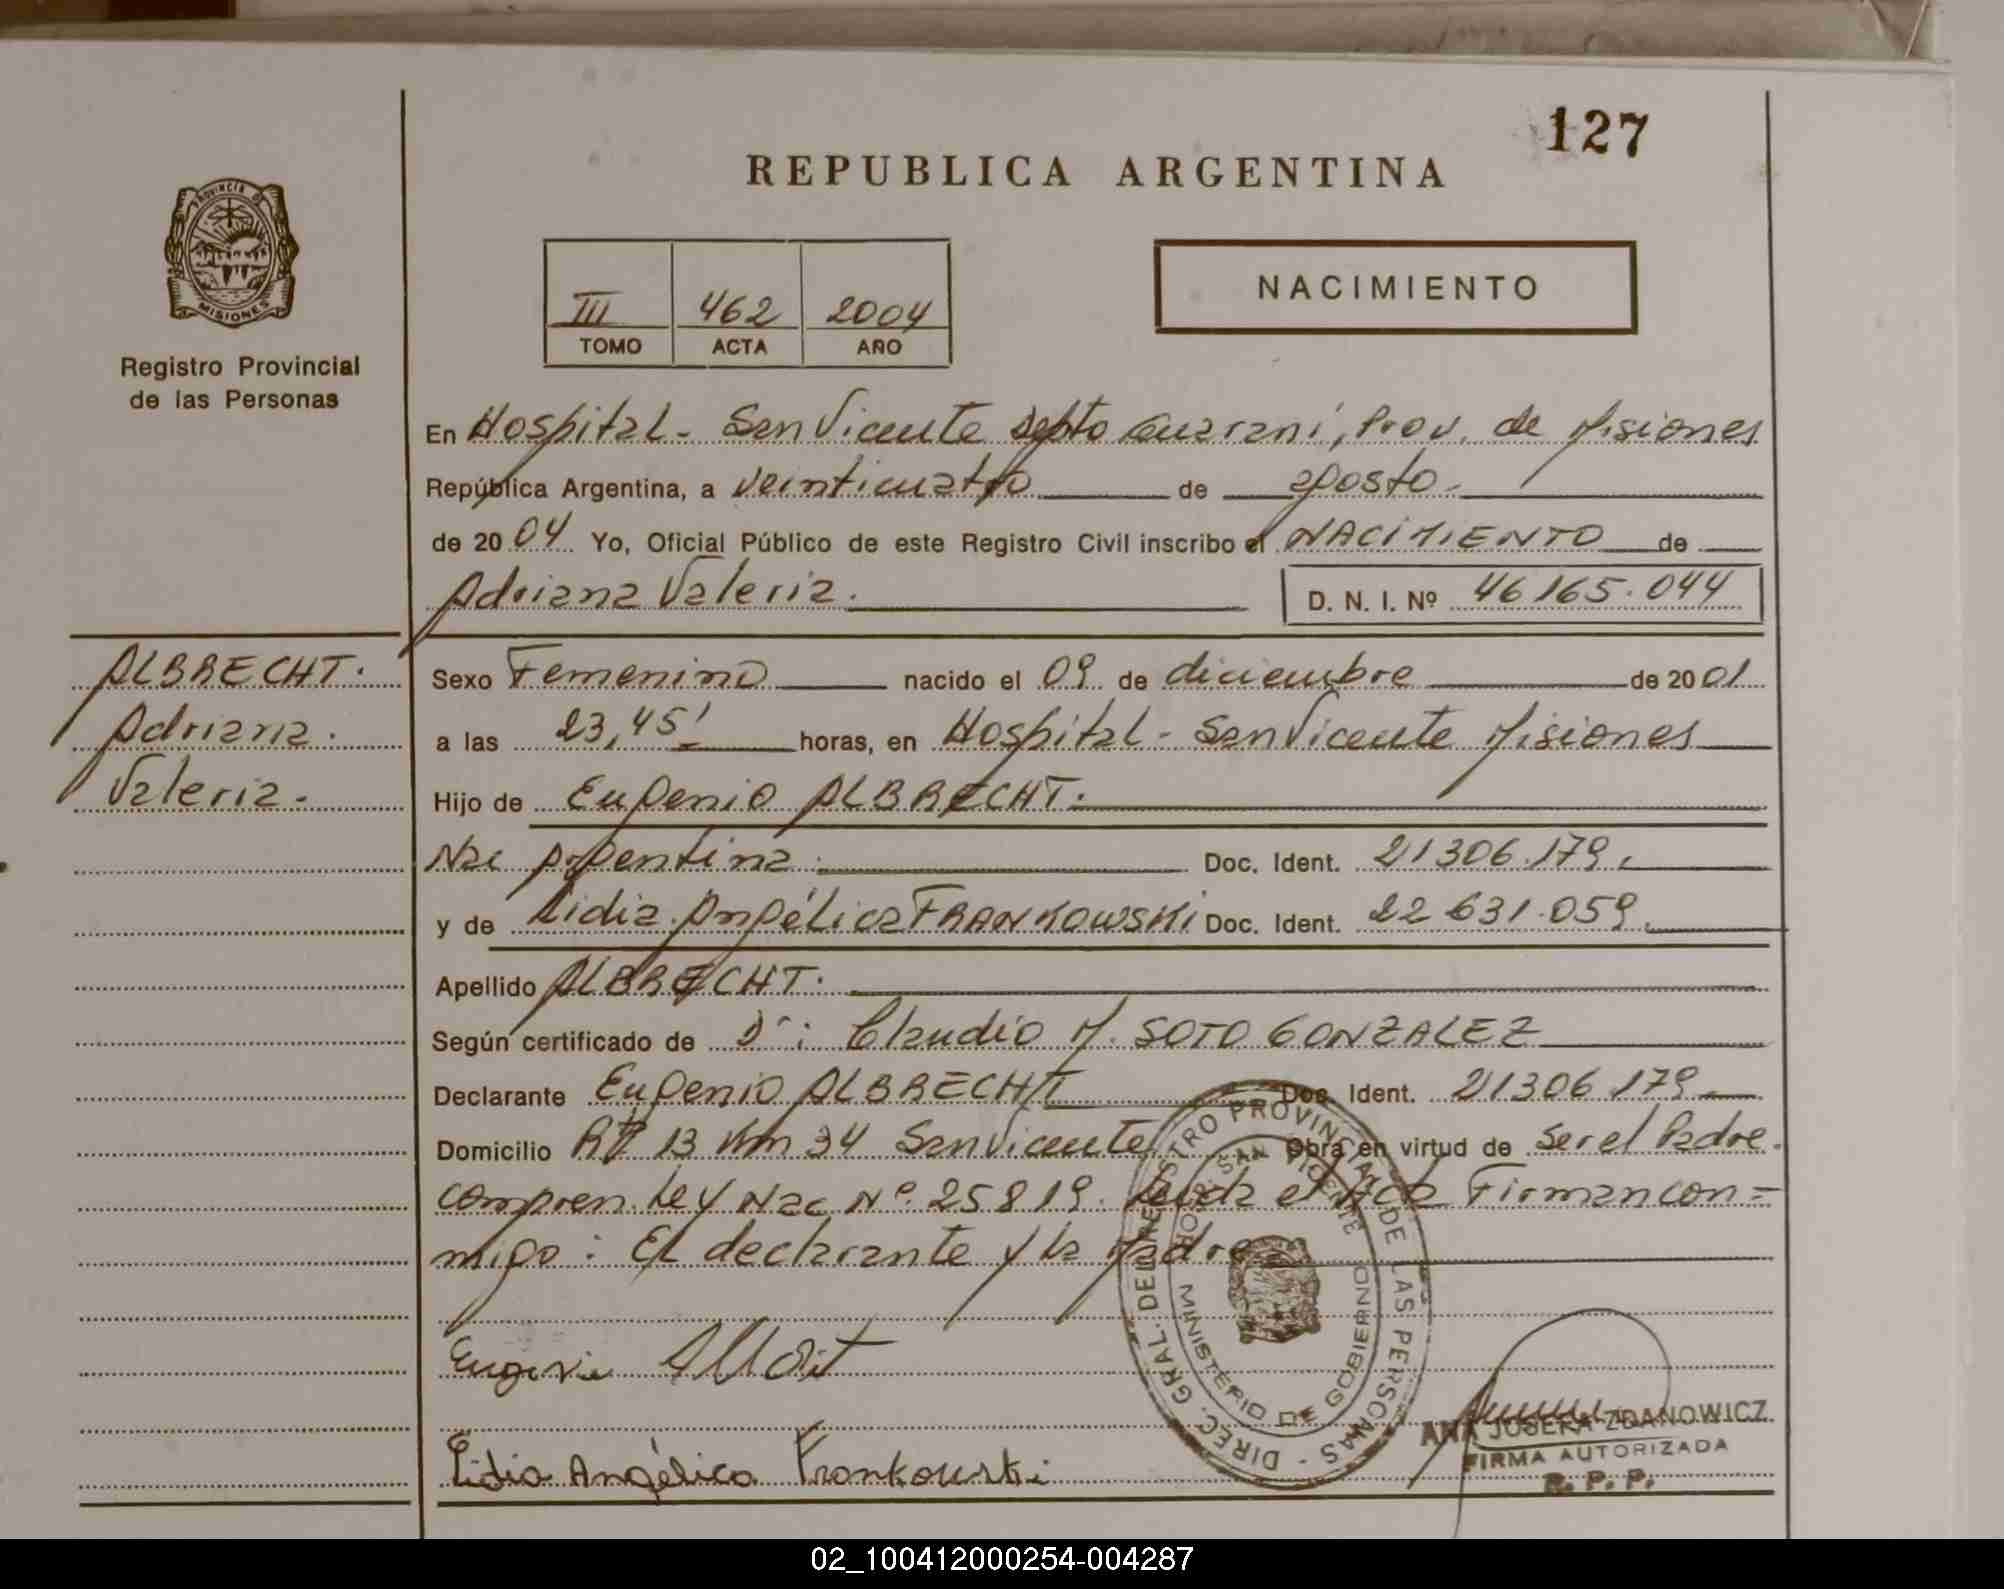 127
REPUBLICA ARGENTINA
PROVINCIA DE MISIONES
Registro Provincial
de las Personas
III 462 2004
TOMO ACTA AÑO
NACIMIENTO
En Hospital - San Vicente Depto Guaraní, Prov. de Misiones
República Argentina, a veinticuatro de agosto.
de 2004 Yo, Oficial Público de este Registro Civil inscribo el NACIMIENTO de
Adriana Valeria. D. N. I. Nº 46165.044
ALBRECHT.
Adriana.
Valeria.
Sexo Femenino nacido el 09 de diciembre de 2001
a las 23,45' horas, en Hospital - San Vicente Misiones
Hijo de Eugenio ALBRECHT.
Nac Argentina. Doc. Ident. 21306.179.
y de Lidia Angélica FRANKOWSKI Doc. Ident. 22631.059.
Apellido ALBRECHT.
Según certificado de Dr: Claudio M. SOTO GONZALEZ
Declarante Eugenio ALBRECHT Doc. Ident. 21306179
Domicilio Rta 13 Km 34 San Vicente Obra en virtud de ser el Padre.
compren. Ley Nac Nº 25819. Leída el Acta Firman con=
migo: El declarante y la Madre
Eugenio
Lidia Angélica Frankowski
DIREC. GRAL. DEL REGISTRO PROVINCIAL DE LAS PERSONAS
HOSP. SAN VICENTE
MINISTERIO DE GOBIERNO
ANA JOSEFA ZDANOWICZ
FIRMA AUTORIZADA
R. P. P.
02_100412000254-004287